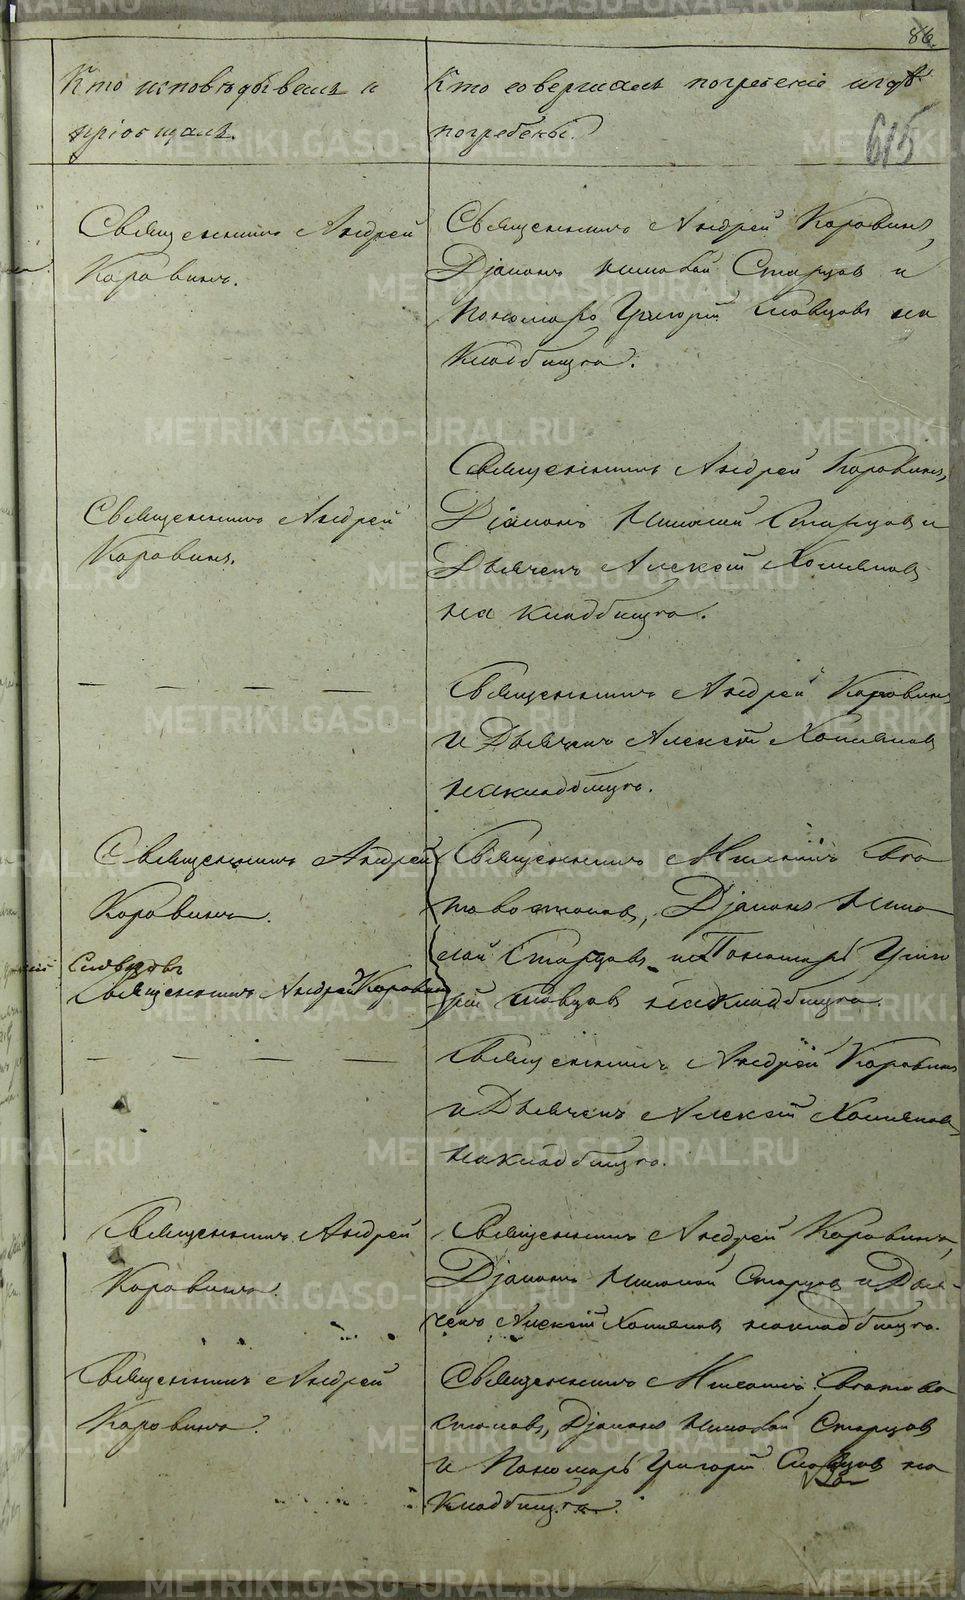 86.
Кто исповѣдывалъ и
пріобщалъ.
Кто совершалъ погребеніе и гдѣ
погребены.
615
Священникъ Андрей
Коровинъ.
Священникъ Андрей Коровинъ,
Діаконъ Николай Старцов и
Пономарь Григорій Словцовъ на
Кладбищѣ.
Священникъ Андрей
Коровинъ.
Священникъ Андрей Коровинъ,
Діаконъ Николай Старцов и
Дьячекъ Алексѣй Хомяковъ
на кладбищѣ.
— — — —
Священникъ Андрей Коровинъ
и Дьячекъ Алексѣй Хомяковъ
на кладбищѣ.
Священникъ Андрей
Коровинъ.
Словцовъ
Священникъ Андрей Коровин
Священникъ
Діаконъ Нико
лай Старцовъ и Пономарь Григо
рій Словцовъ на кладбищѣ.
— — — —
Священникъ Андрей Коровинъ
и Дьячекъ Алексѣй Хомяковъ,
на кладбищѣ.
Священникъ Андрей
Коровинъ.
Священникъ Андрей Коровинъ,
Діаконъ Николай Старцов и Дья-
чекъ Алексѣй Хомяковъ на кладбищѣ.
Священникъ Андрей
Коровинъ.
Священникъ
Діаконъ Николай Старцов
и Пономарь Григорій Словцовъ на
Кладбищѣ.
METRIKI.GASO-URAL.RU